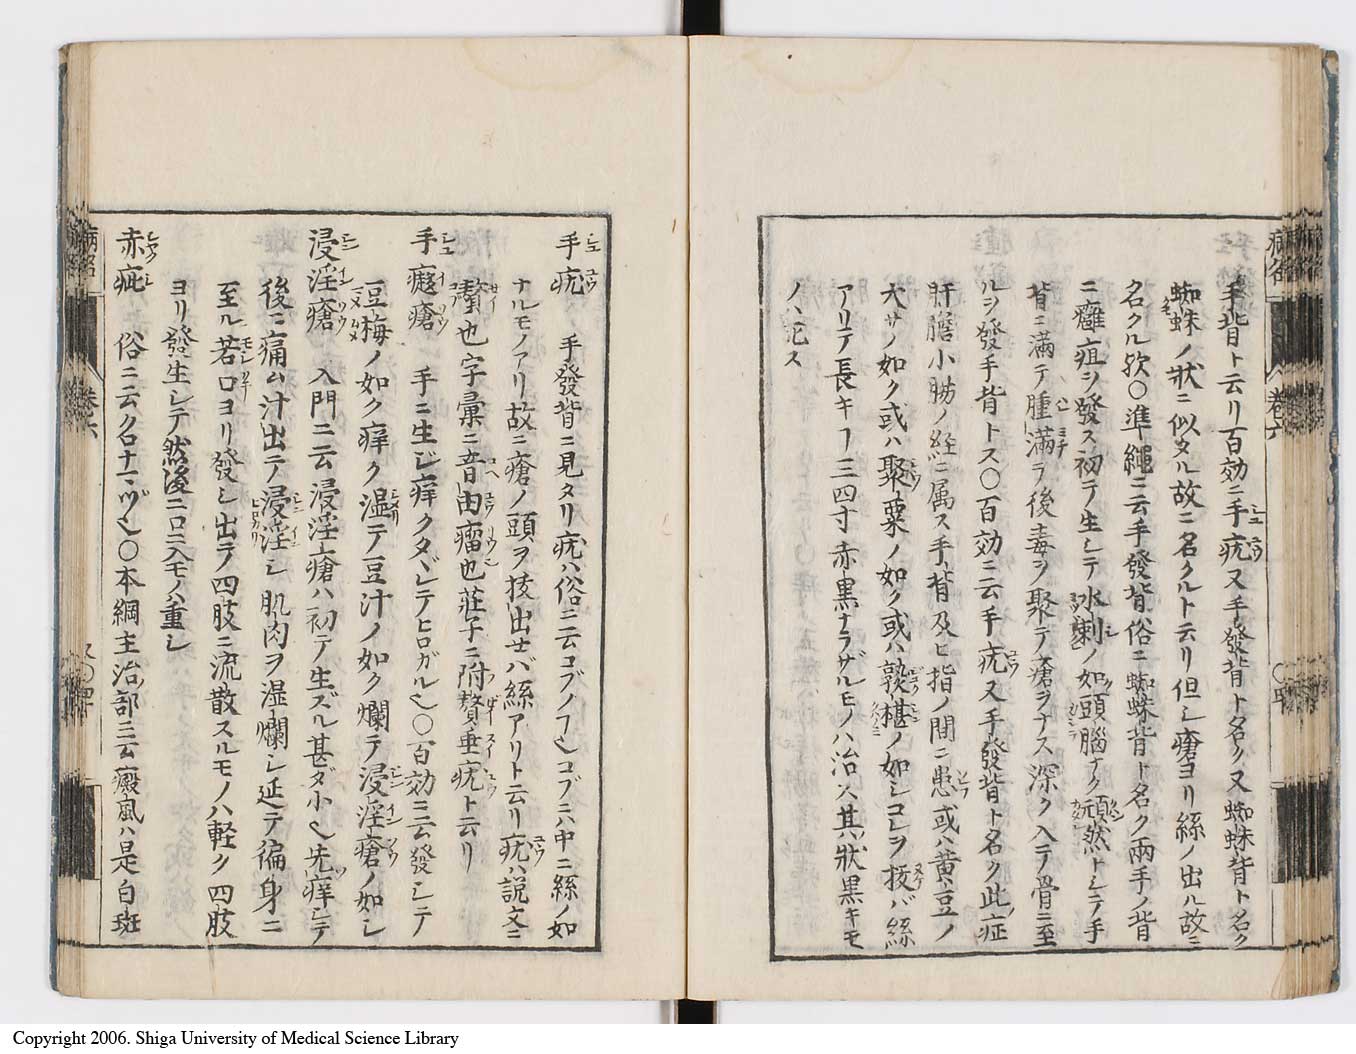 手背ト云リ百効ニ手疣又手發背ト名ク又蜘蛛背ト名ク
蜘蛛ノ狀ニ似タル故ニ名クルト云リ但シ瘡ヨリ絲ノ出ル故ニ
名クル欤〇準繩ニ云手發背俗ニ蜘蛛背ト名ク兩手ノ背
ニ癰疽ヲ發ス初テ生シテ水刺ノ如頭腦ナク頑然トシテ手
背ニ満テ腫満ヲ後毒ヲ聚テ瘡ヲナス深ク入テ骨ニ至
ルヲ發手背トス〇百効ニ云手疣又手發背ト名ク此症
肝膽小膓ノ経ニ属ス手背及ヒ指ノ間ニ患或ハ黄豆ノ
大サノ如ク或ハ聚粟ノ如ク或ハ熟椹ノ如シコレヲ抜バ絲
アリテ長キヿ三四寸赤黒ナラザルモノハ治ス其狀黒キモ
ノハ死ス
手疣 手發背ニ見タリ疣ハ俗ニ云コブノヿ也コブニハ中ニ絲ノ如
ナルモノアリ故ニ瘡ノ頭ヲ抜出セバ絲アリト云リ疣ハ説文ニ
贅也字彙ニ音由瘤也莊子ニ附贅垂疣ト云リ
手瘡 手ニ生ジ痒クタヾレテヒロガル也〇百効ニ云發シテ
豆梅ノ如ク痒ク湿テ豆汁ノ如ク爛テ浸淫瘡ノ如シ
浸淫瘡 入門ニ云浸淫瘡ハ初テ生ズル甚ダ小也先痒シテ
後ニ痛ム汁出テ浸淫シ肌肉ヲ湿爛シ延テ徧身ニ
至ル若口ヨリ發シ出テ四肢ニ流散スルモノハ軽ク四肢
ヨリ發生シテ然後ニ口ニ入モノハ重シ
赤疵 俗ニ云クロナマヅ也〇本綱主治部ニ云癜風ハ是白斑
病名
卷六
Copyright 2006. Shiga University of Medical Science Library